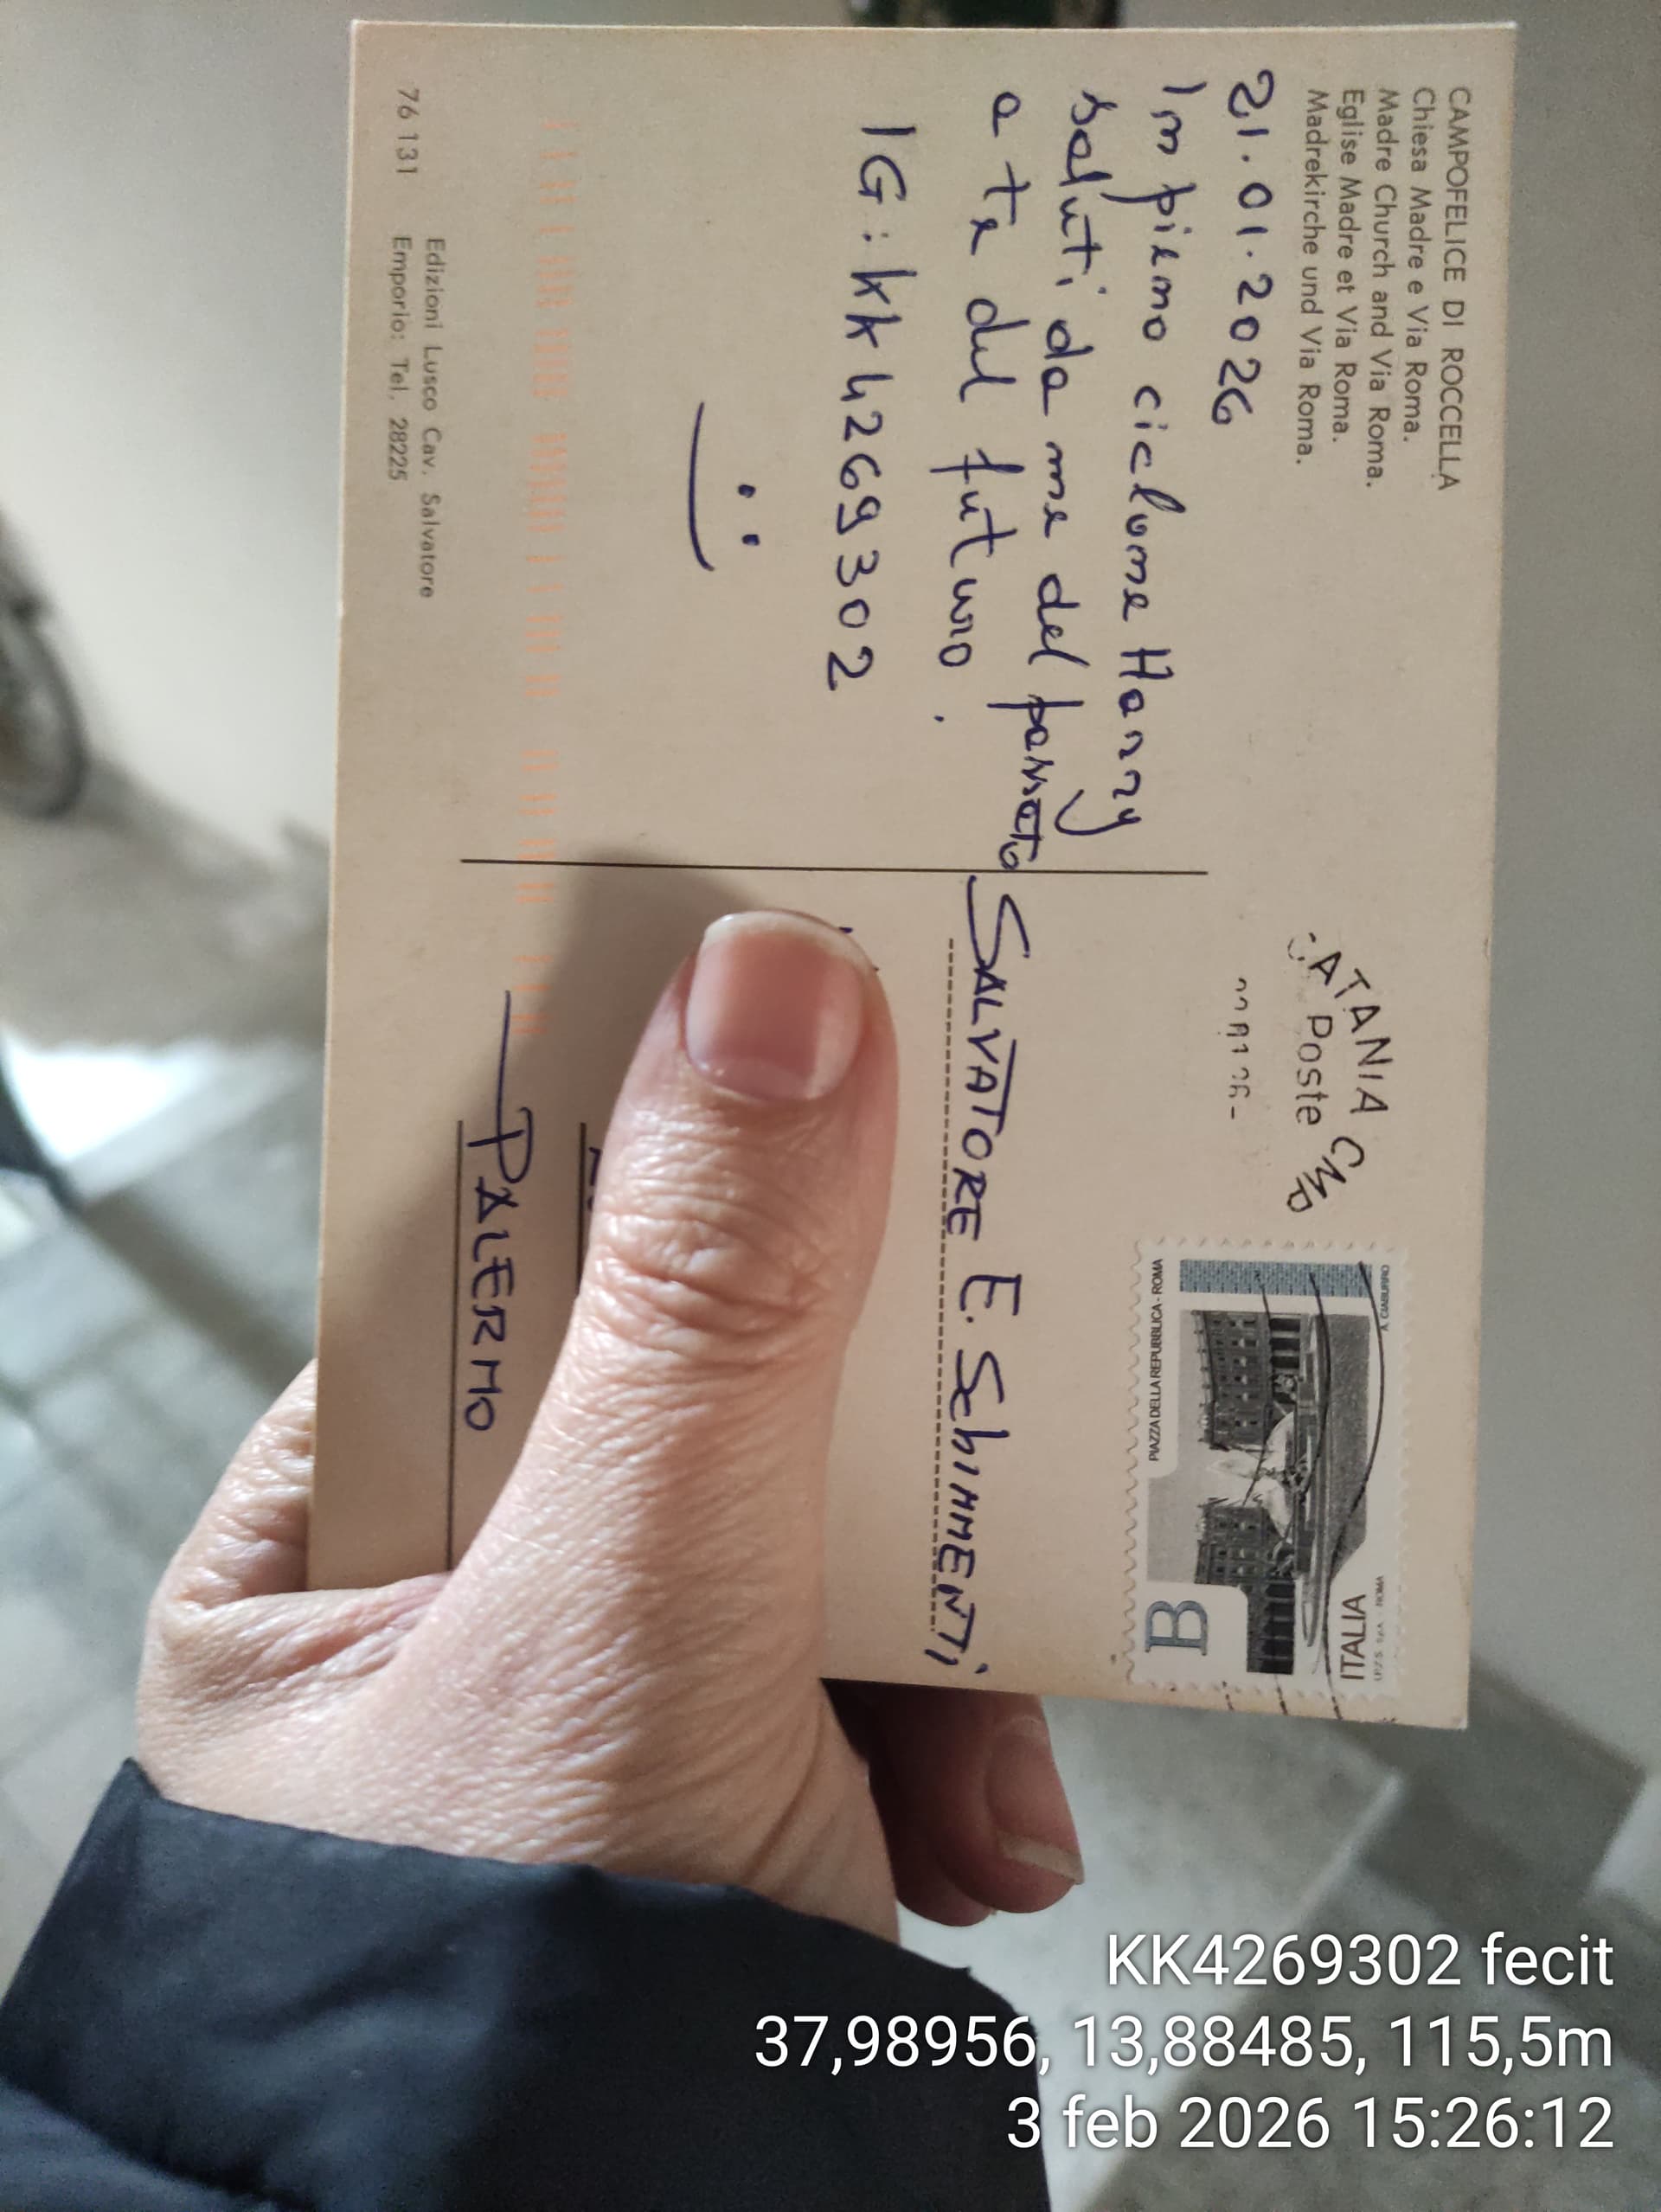 CAMPOFELICE DI ROCCELLA
Chiesa Madre e Via Roma.
Madre Church and Via Roma.
Eglise Madre et Via Roma.
Madrekirche und Via Roma.
21.01.2026
In pieno ciclone Harry
saluti da me del passato
a te del futuro.
IG: KK4269302
76 131
Edizioni Lusco Cav. Salvatore
Emporio: Tel. 28225
CATANIA CMP
Poste
ITALIA
B
PIAZZA DELLA REPUBBLICA - ROMA
SALVATORE E. SCHIMMENTI
PALERMO
KK4269302 fecit
37,98956, 13,88485, 115,5m
3 feb 2026 15:26:12